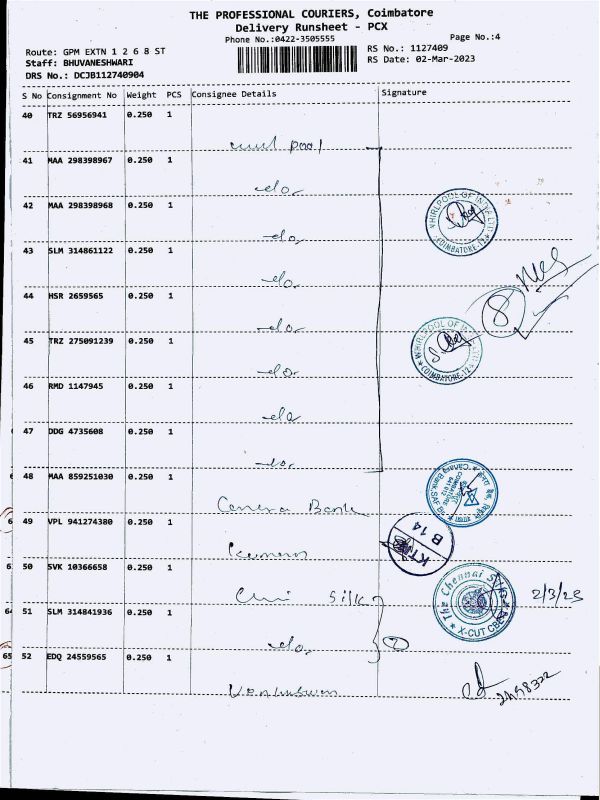 THE PROFESSIONAL COURIERS, Coimbatore
Delivery Runsheet - PCX
Phone No.:0422-3505555
Page No.:4
Route: GPM EXTN 1 2 6 8 ST
RS No.: 1127409
Staff: BHUVANESHWARI
RS Date: 02-Mar-2023
DRS No.: DCJB112740904
S No Consignment No Weight PCS Consignee Details Signature
40 TRZ 56956941 0.250 1
pool
41 MAA 298398967 0.250 1
-do-
42 MAA 298398968 0.250 1
-do-
WHIRLPOOL OF INDIA LTD
COIMBATORE-12
43 SLM 314861122 0.250 1
-do-
44 HSR 2659565 0.250 1
-do-
8
45 TRZ 275091239 0.250 1
-do-
WHIRLPOOL OF
COIMBATORE-12
46 RMD 1147945 0.250 1
-do-
47 DDG 4735608 0.250 1
-do-
48 MAA 859251030 0.250 1
Canara Bank
Canara Bank
49 VPL 941274380 0.250 1
KTM
B 14
50 SVK 10366658 0.250 1
Silk
The Chennai Silks
X-CUT CBE
2/3/23
51 SLM 314841936 0.250 1
-do-
2
52 EDQ 24559565 0.250 1